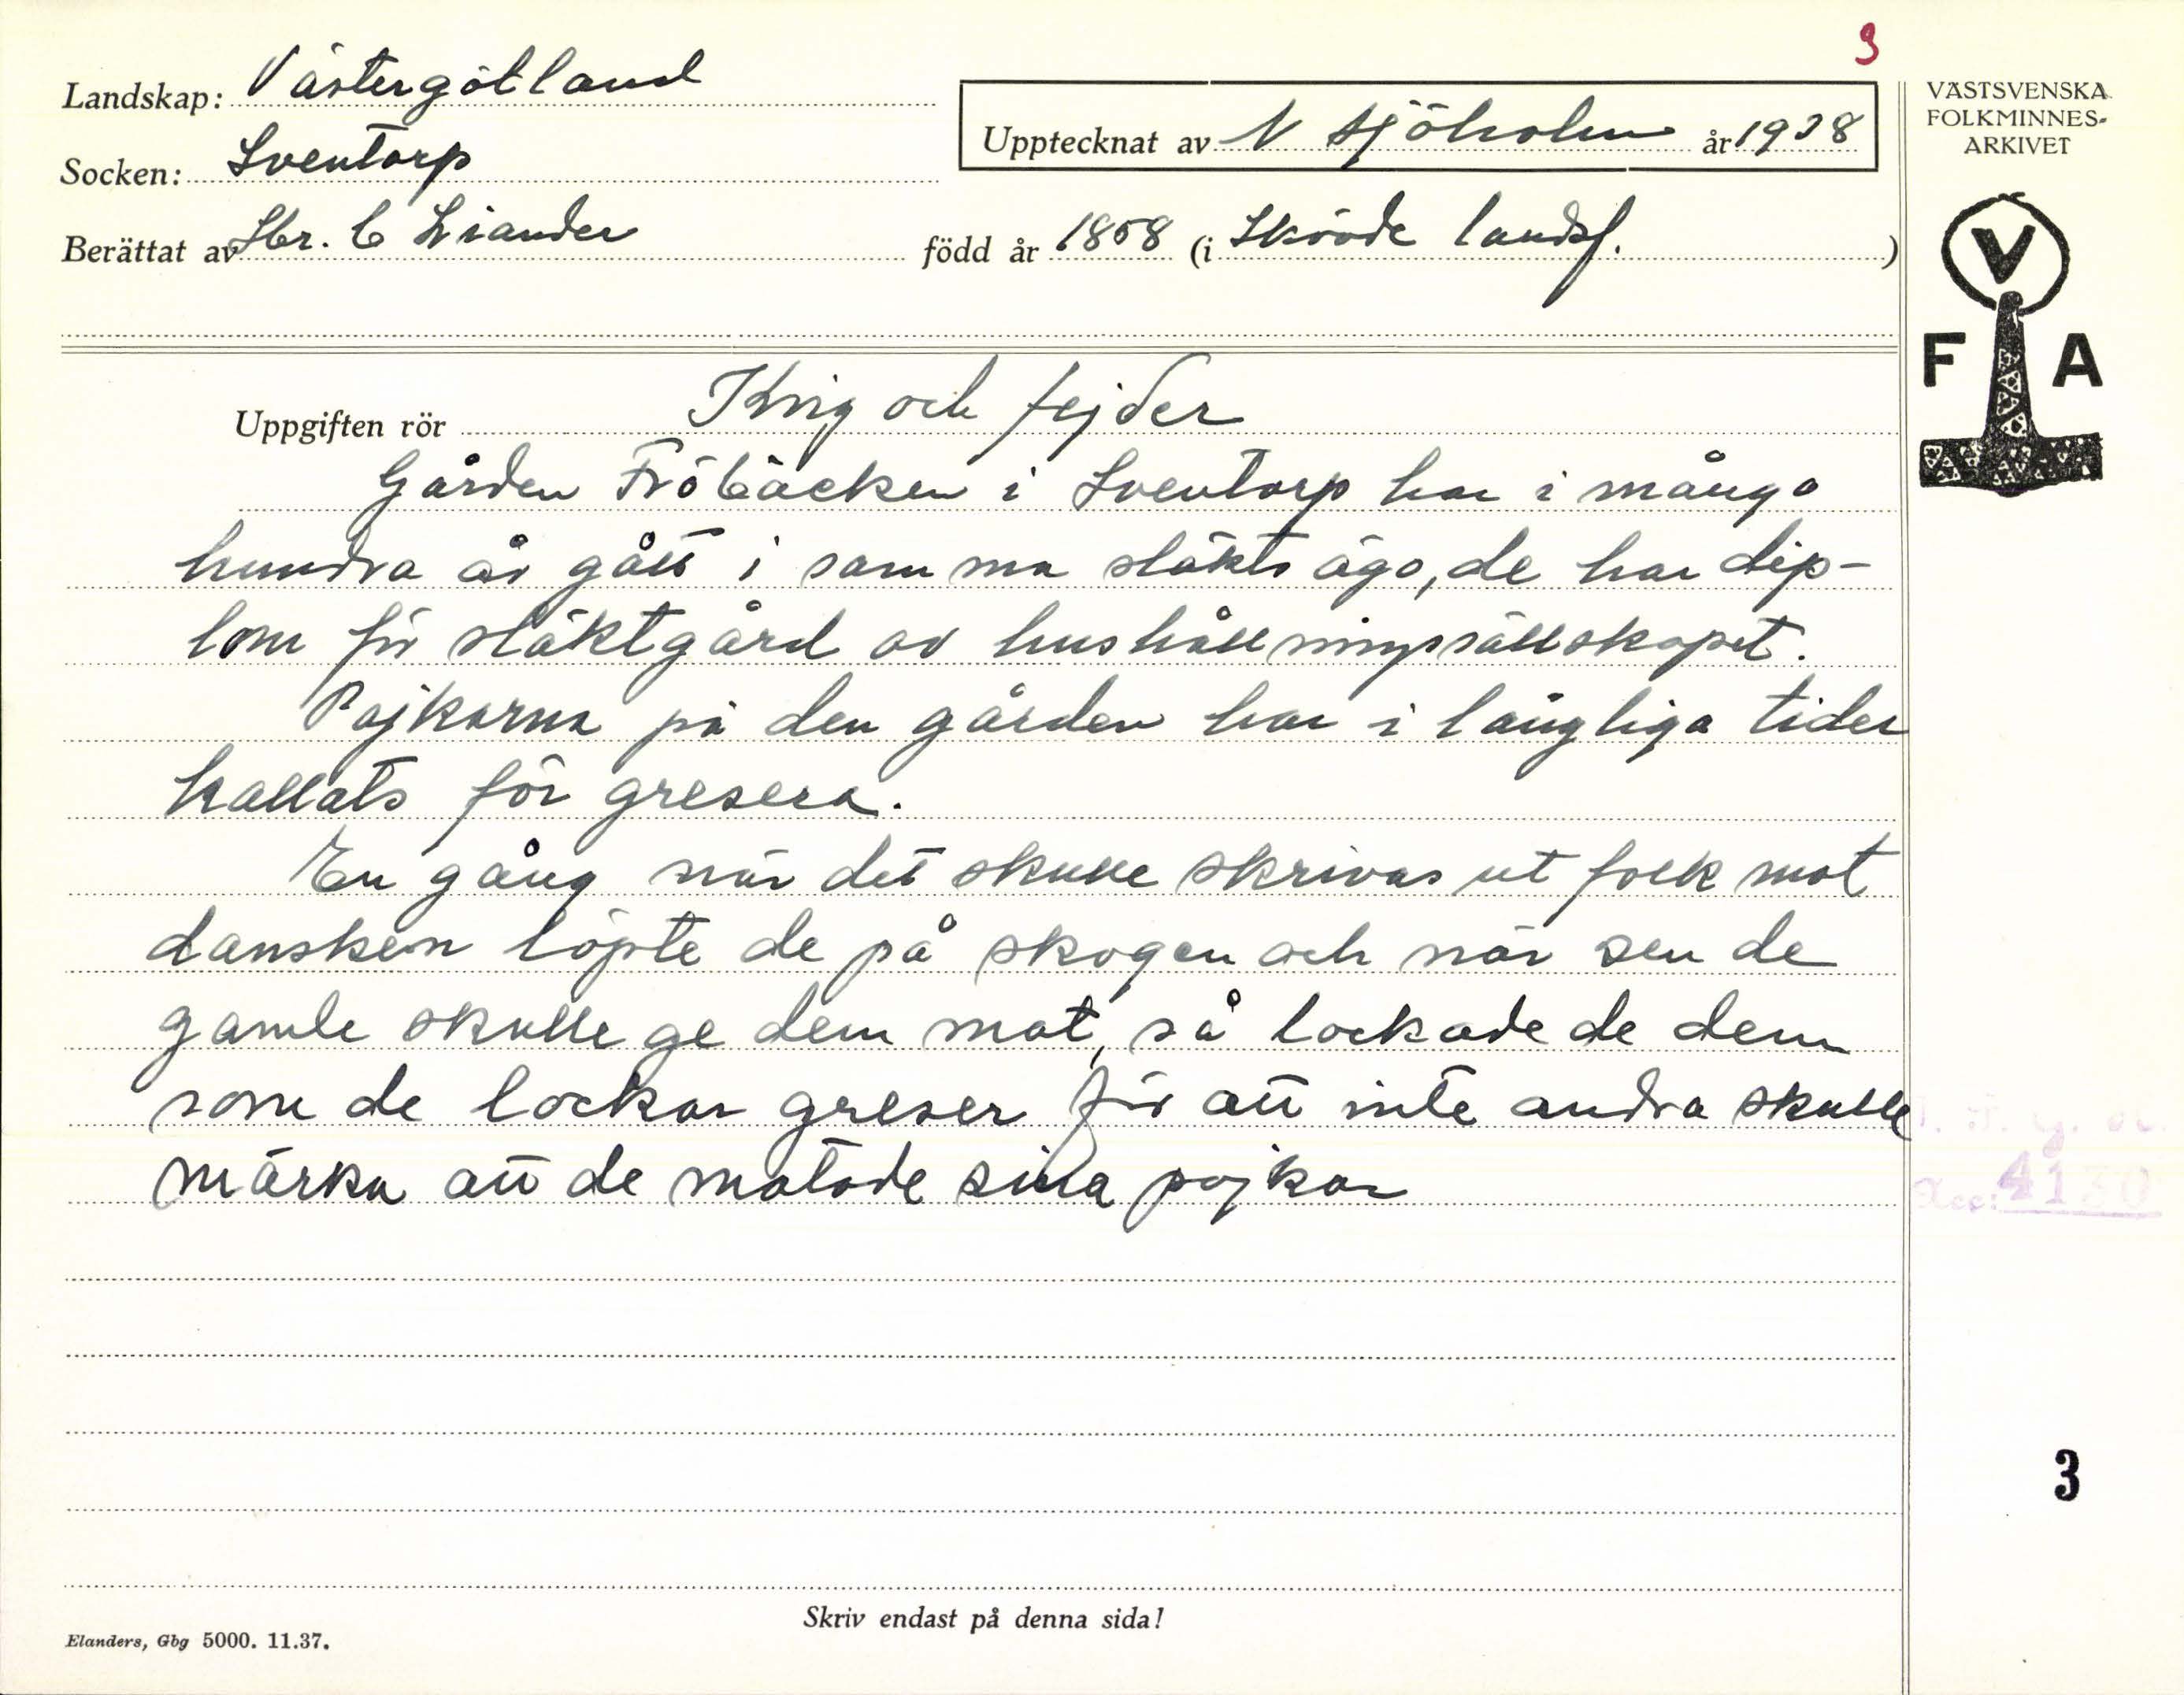 3
Landskap: Västergötland
Socken: Sventorp
Berättat av Hr. C Liander
Upptecknat av N Sjöholm år 1938
född år 1858 (i Skövde landsf.)
VÄSTSVENSKA
FOLKMINNES-
ARKIVET
V
F A
Uppgiften rör Krig och fejder
Gården Fröbäcken i Sventorp har i många
hundra år gått i samma släkts ägo, de har dip-
lom för släktgård av hushållningssällskapet.
Pojkarna på den gården har i långliga tider
kallats för gresera.
En gång när det skulle skrivas ut folk mot
dansken löpte de på skogen och när sen de
gamle skulle ge dem mat, så lockade de dem
som de lockar greser för att inte andra skulle
märka att de matade sina pojkar
Acc: 4130
3
Skriv endast på denna sida!
Elanders, Gbg 5000. 11.37.